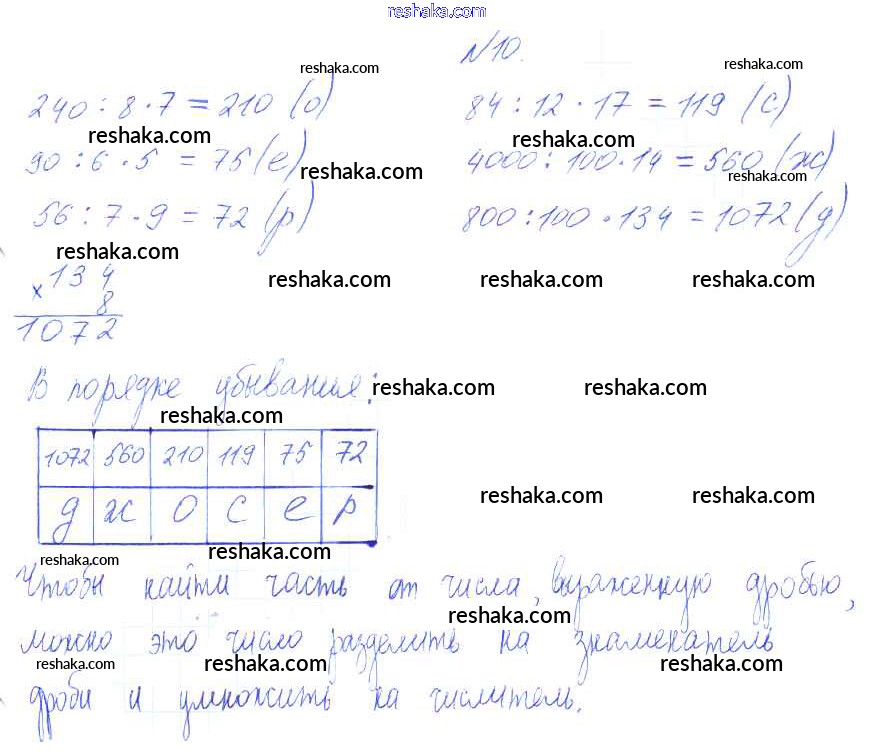 reshaka.com
№10.
reshaka.com
reshaka.com
240 : 8 · 7 = 210 (о)
84 : 12 · 17 = 119 (с)
reshaka.com
reshaka.com
90 : 6 · 5 = 75 (е)
4000 : 100 · 14 = 560 (ж)
reshaka.com
reshaka.com
56 : 7 · 9 = 72 (р)
800 : 100 · 134 = 1072 (д)
reshaka.com
× 134
8
1072
reshaka.com
reshaka.com
reshaka.com
В порядке убывания:
reshaka.com
reshaka.com
reshaka.com
1072 560 210 119 75 72
д ж о с е р
reshaka.com
reshaka.com
reshaka.com
reshaka.com
Чтобы найти часть от числа, выраженную дробью,
reshaka.com
можно это число разделить на знаменатель
reshaka.com
reshaka.com
reshaka.com
дроби и умножить на числитель.